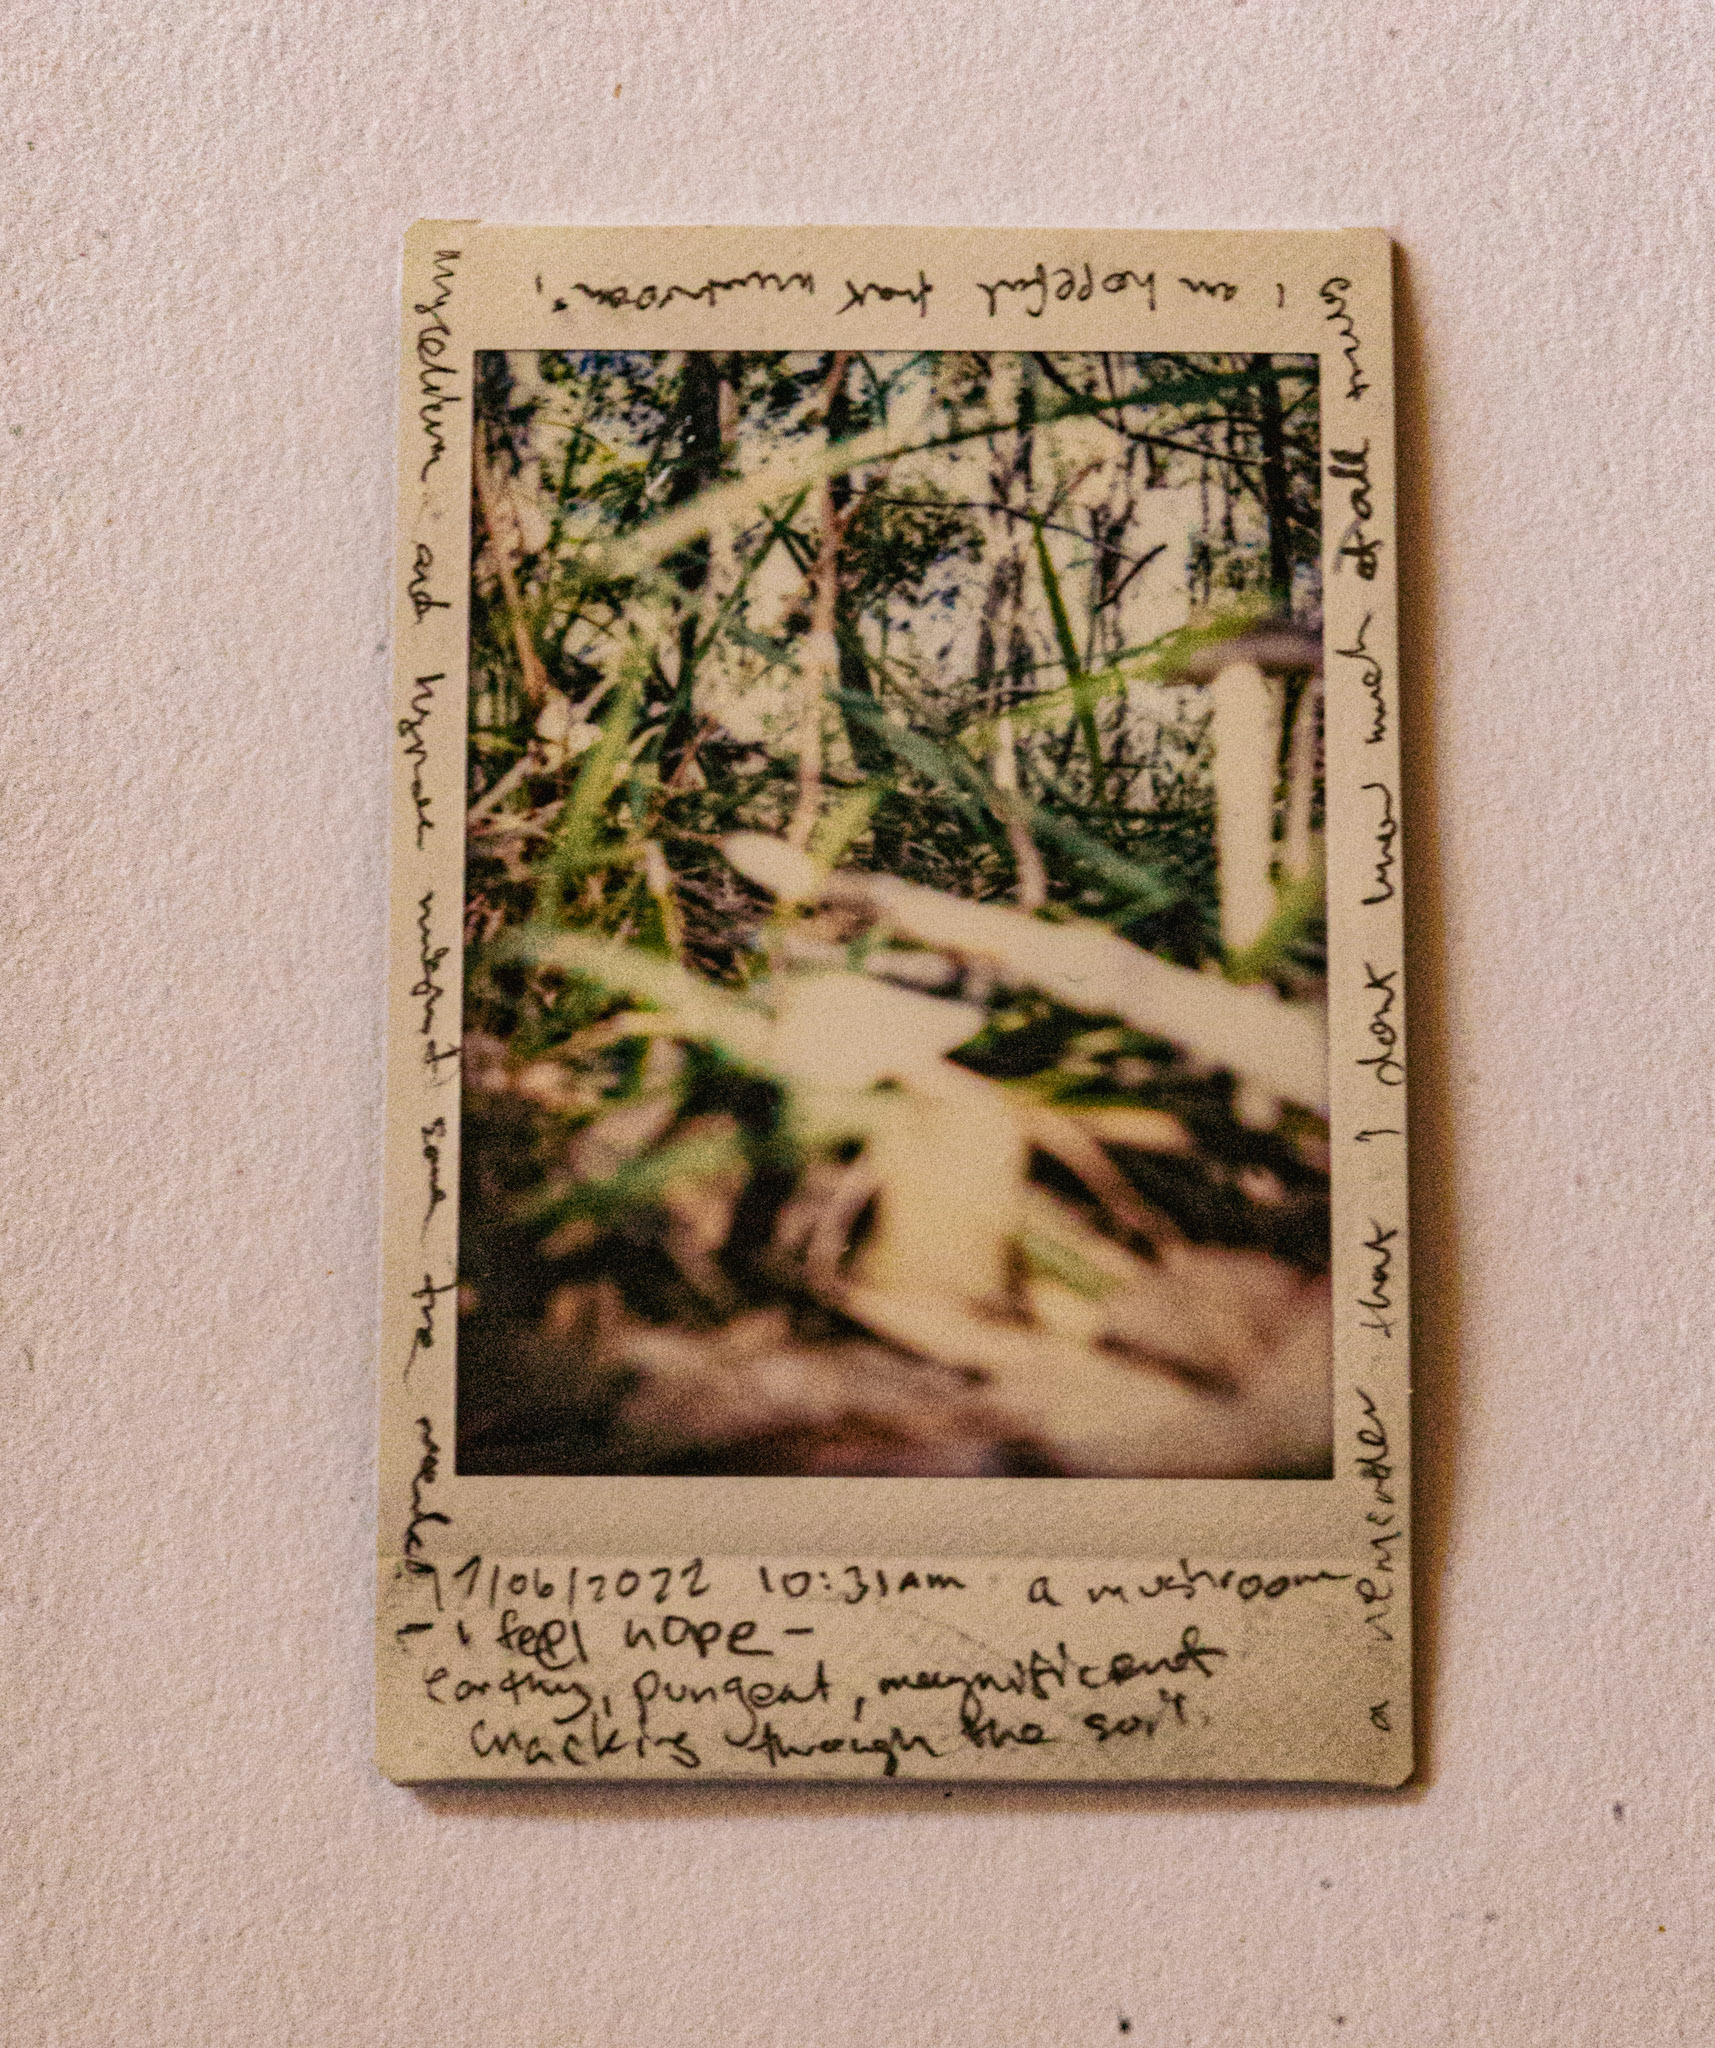 7/06/2022 10:31am a mushroom
i feel hope -
earthy, pungent, magnificent
cracking through the soil.
a remember that i dont know much of all trus
i am hopeful that mushroom,
mycelium and hyphae might some the